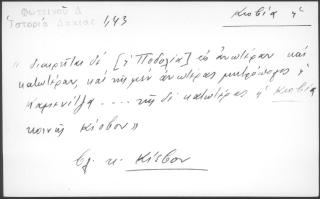 Φωτεινοῦ Δ
Ἱστορία Δακίας 1,43
Κιοβία ἡ
"διαιρεῖται δὲ [ἡ Ποδολία] εἰς ἀνωτέραν καὶ
κατωτέραν, καὶ τῆς μὲν ἀνωτέρας μητρόπολις ἡ
Καμενίτζα .... τῆς δὲ κατωτέρας ἡ Κιοβία
κοινῶς Κίοβον"
βλ. κ. Κίεβον